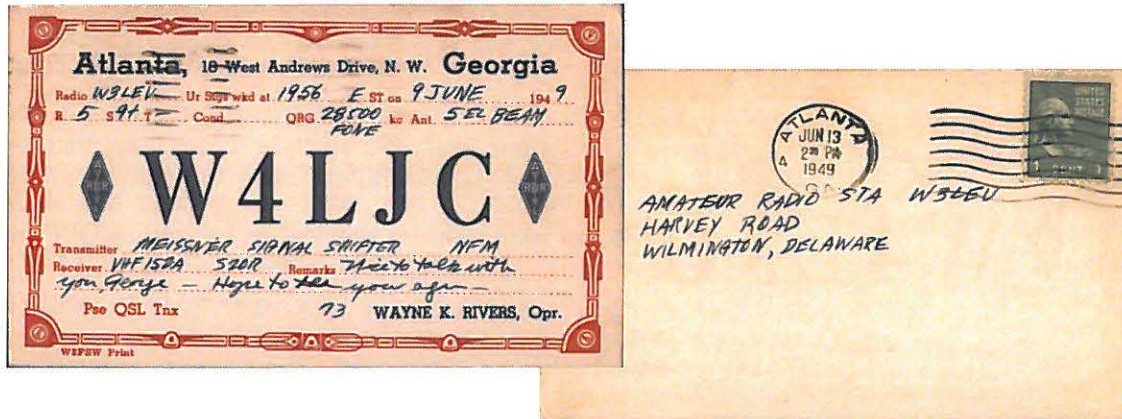 Atlanta, 18 West Andrews Drive, N. W. Georgia
Radio W3LEV Ur Sigs wkd at 1956 E ST on 9 JUNE 1949
R. 5 S 9+ T Cond. QRG 28500 kc Ant. 5 EL BEAM
FONE
W4LJC
Transmitter MEISSNER SIGNAL SHIFTER NFM
Receiver VHF152A S20R Remarks Nice to talk with
you, George — Hope to see you agn —
Pse QSL Tnx 73 WAYNE K. RIVERS, Opr.
Print
ATLANTA
JUN 13
PM
1949
4
GA
UNITED
STATES
1 CENT 1
AMATEUR RADIO STA W3LEV
HARVEY ROAD
WILMINGTON, DELAWARE